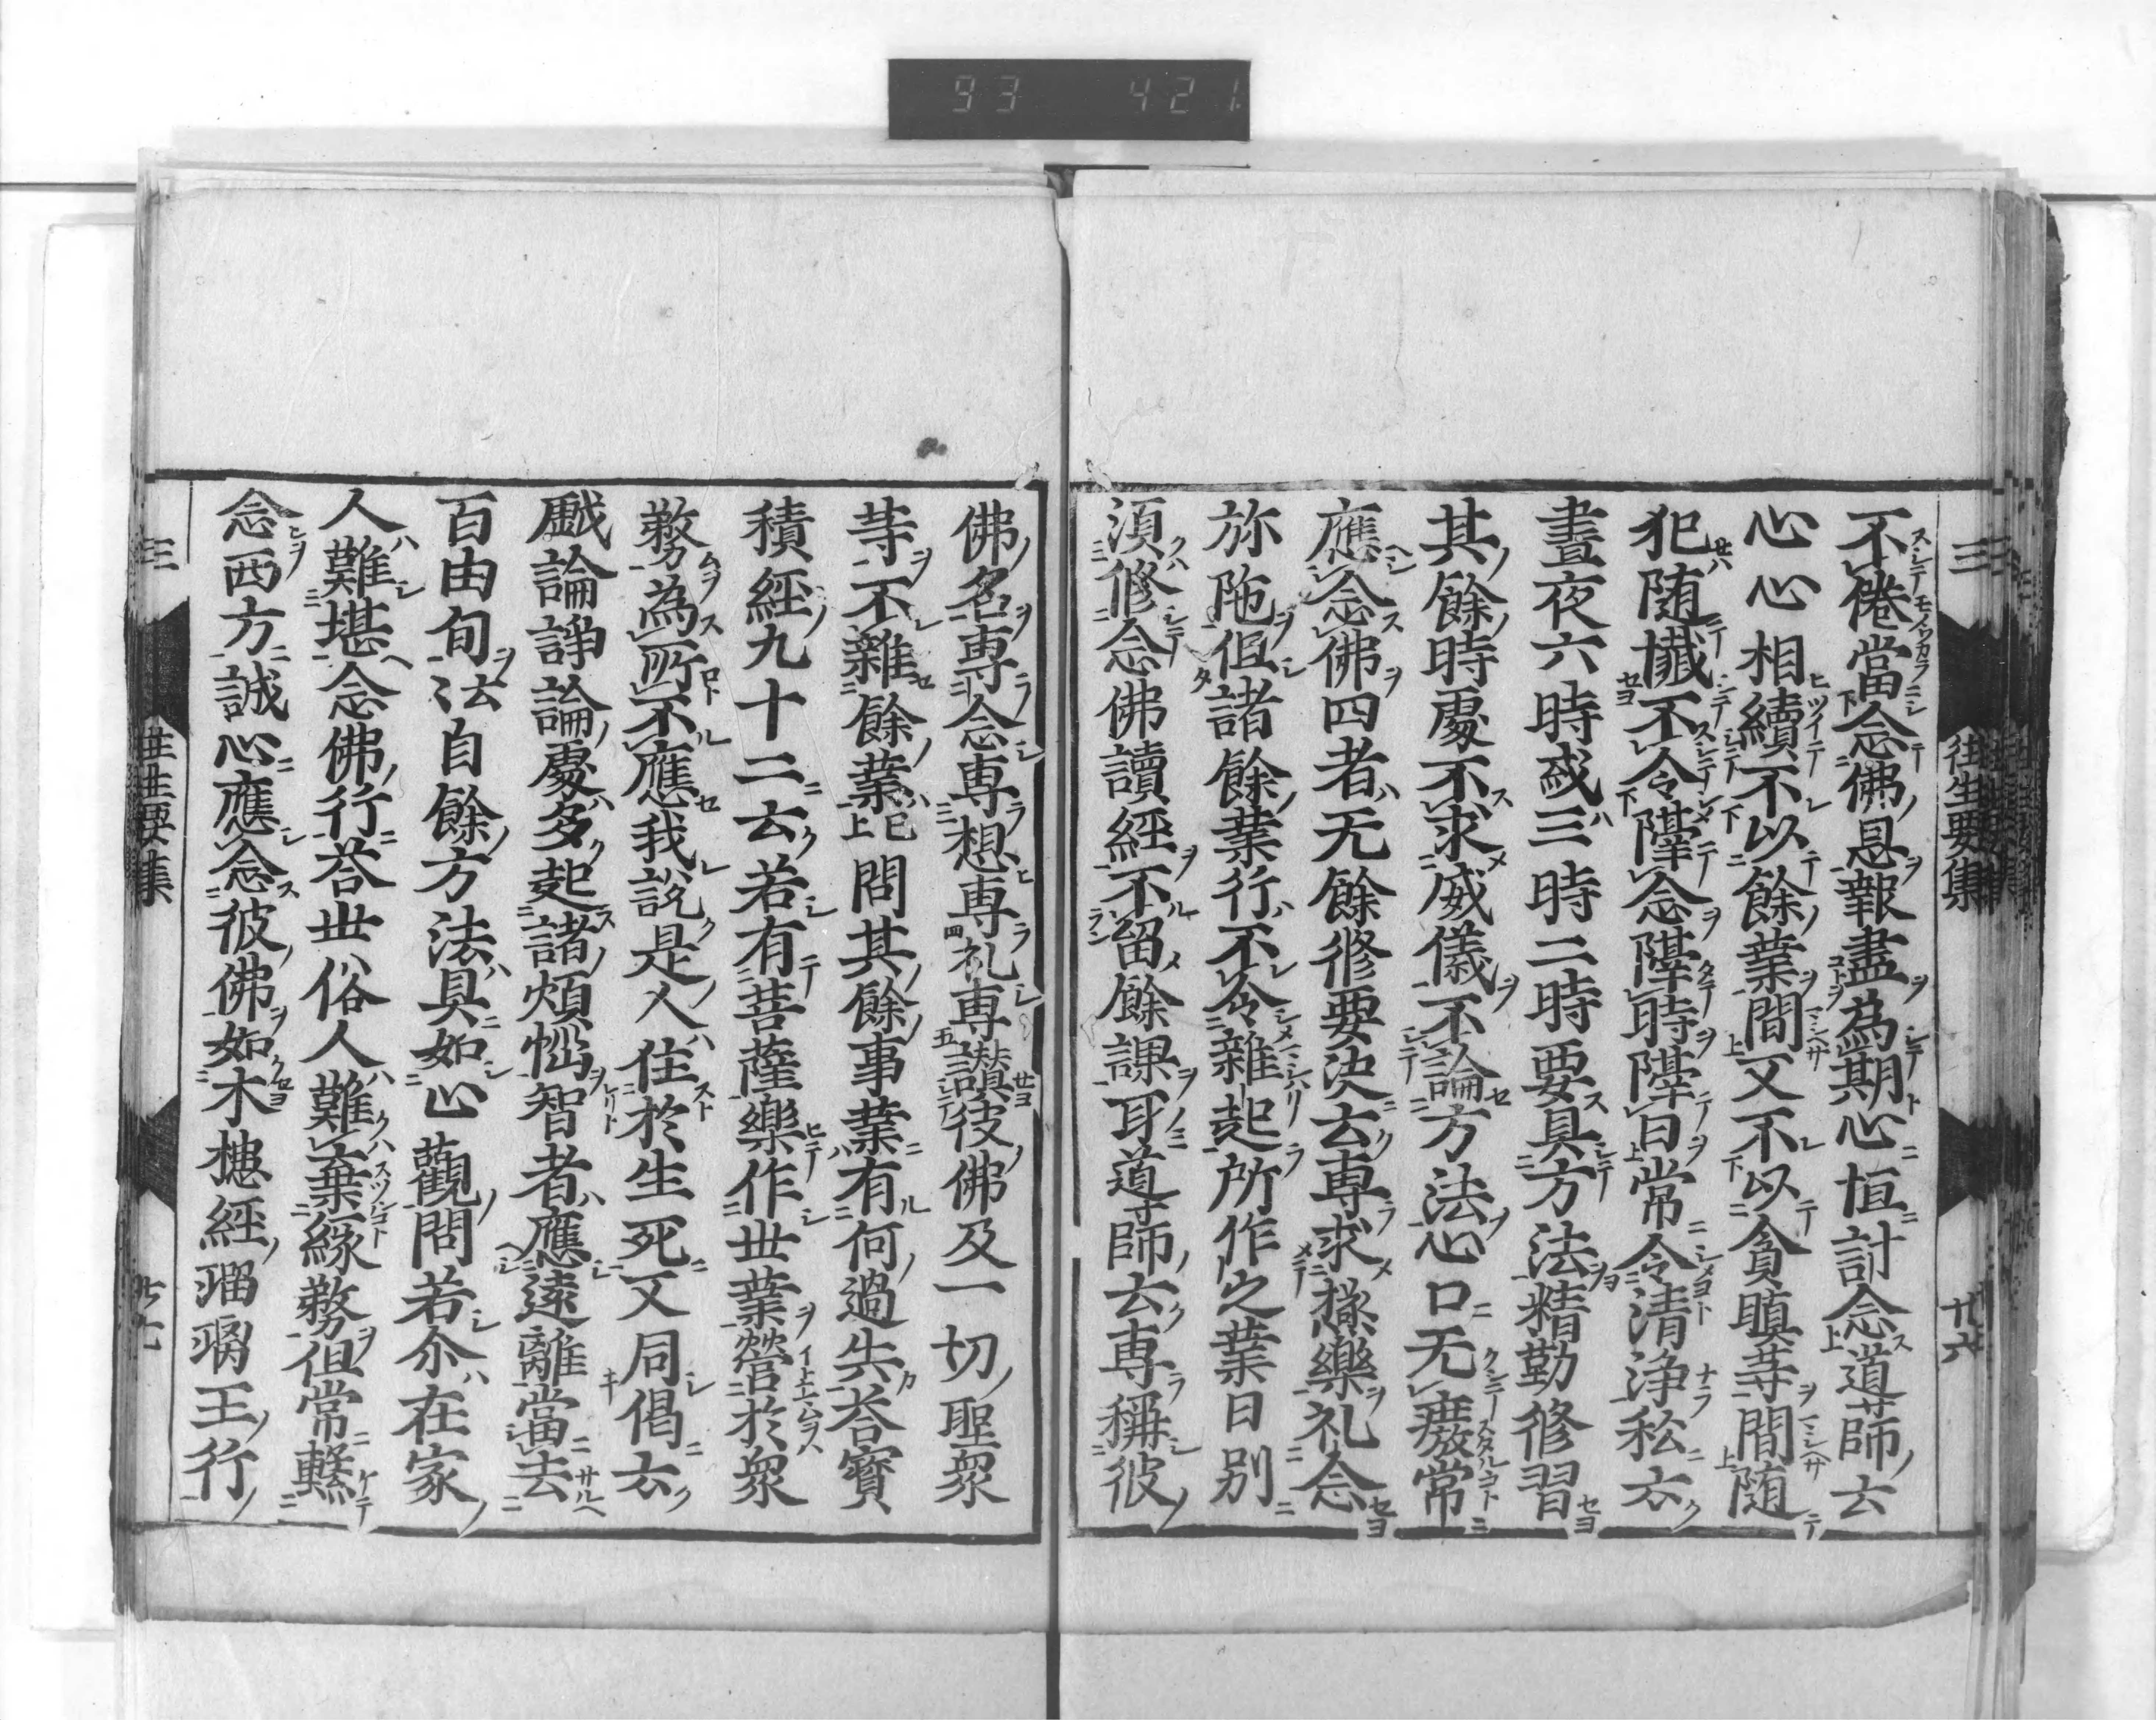 93 421
三 往生要集 廿六
不倦當念佛恩報盡為期心恒計念道師云
心心相續不以餘業間又不以貪瞋䓁間随
犯随懺不令隔念隔時隔日常令清淨私云
晝夜六時或三時二時要具方法精勤修習
其餘時處不求威儀不論方法心口无廢常
應念佛四者无餘修要决云專求極樂礼念
弥陁但諸餘業行不令雜起所作之業日別
須修念佛讀經不留餘課耳導師云專稱彼
佛名專念專想專礼專讃彼佛及一切聖衆
䓁不雜餘業已上問其餘事業有何過失荅寳
積經九十二云若有菩薩樂作世業營於衆
務為所不應我說是人住於生死又同偈云
戲論諍論處多起諸煩惱智者應遠離當去
百由旬法自餘方法具如心觀問若尒在家
人難堪念佛行荅世俗人難棄緣務但常繫
念西方誠心應念彼佛如木槵經瑠璃王行
三 往生要集 廿七